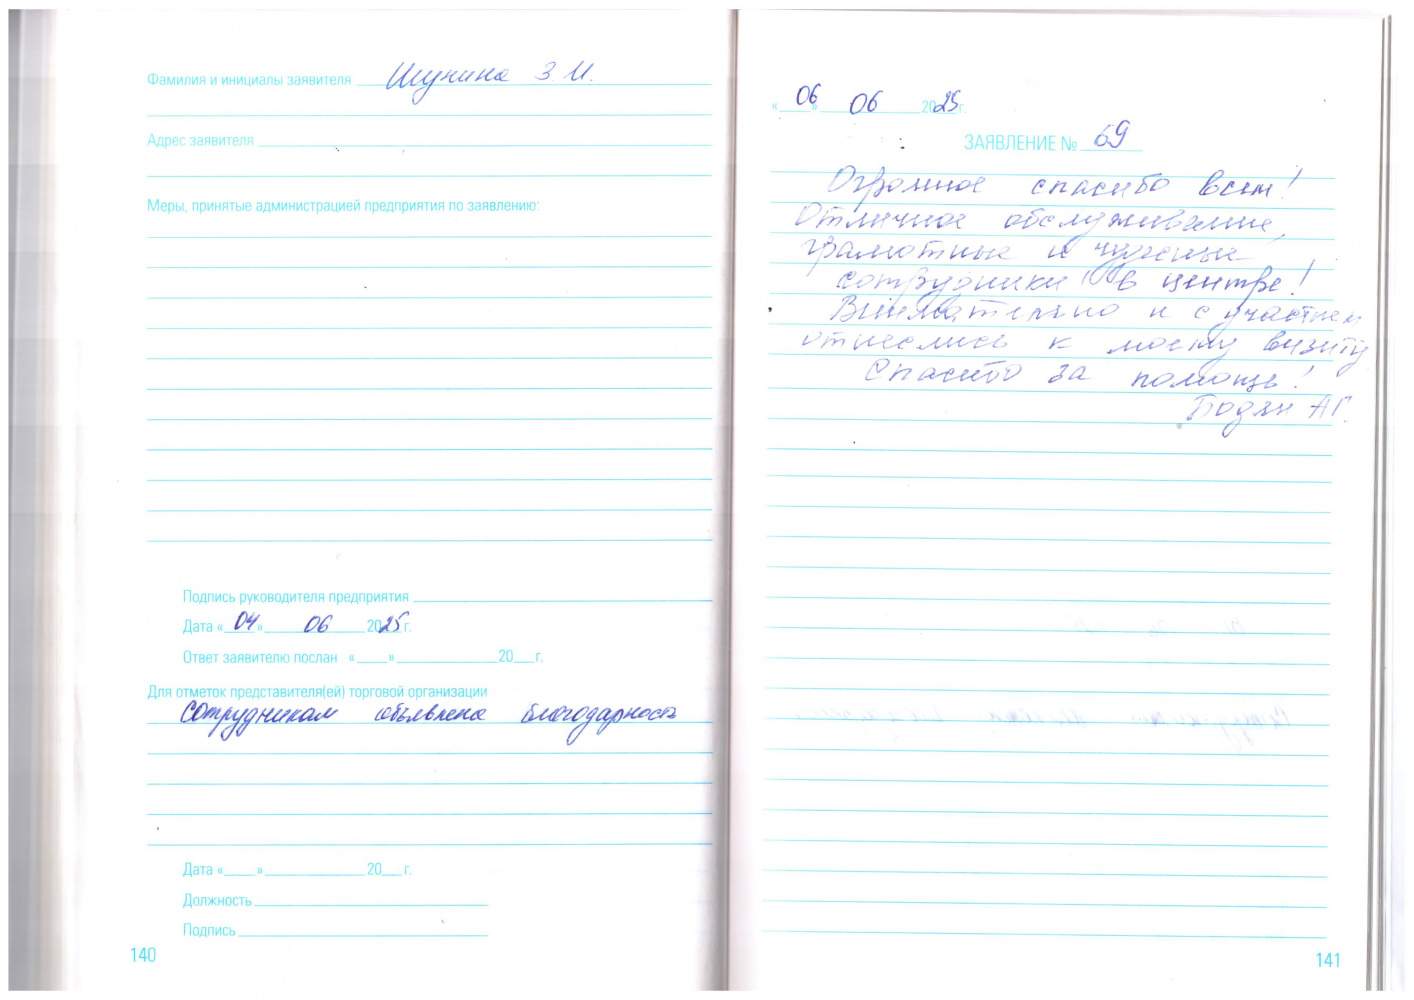 Фамилия и инициалы заявителя Шунина З И.
Адрес заявителя
Меры, принятые администрацией предприятия по заявлению:
Подпись руководителя предприятия
Дата «04» 06 2025г.
Ответ заявителю послан «    »    20    г.
Для отметок представителя(ей) торговой организации
Сотрудникам объявлена благодарность
Дата «    »    20    г.
Должность
Подпись
140
«06» 06 2025г.
ЗАЯВЛЕНИЕ № 69
Огромное спасибо всем!
Отличное обслуживание,
грамотные и
сотрудники в центре!
Внимательно и с участием
отнеслись к моему визиту
Спасибо за помощь!
А Г.
141